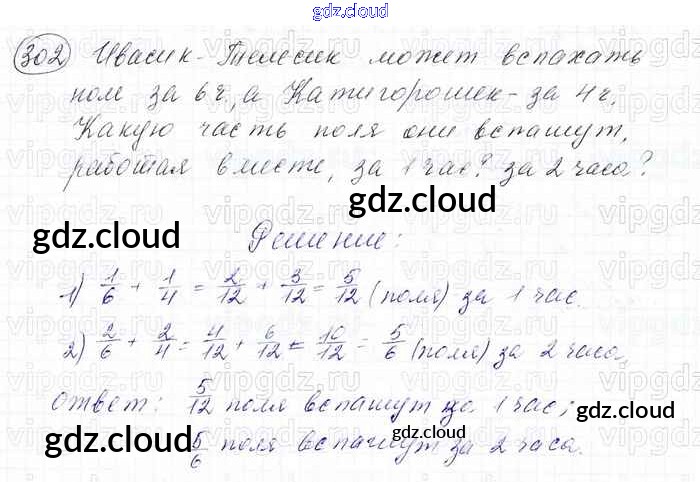 gdz.cloud
302 Ивасик-Телесик может вспахать
поле за 6 ч, а Катигорошек - за 4 ч.
Какую часть поля они вспашут,
работая вместе, за 1 час? за 2 часа?
gdz.cloud
gdz.cloud
Решение:
gdz.cloud
1) 1/6 + 1/4 = 2/12 + 3/12 = 5/12 (поля) за 1 час.
2) 2/6 + 2/4 = 4/12 + 6/12 = 10/12 = 5/6 (поля) за 2 часа.
Ответ: 5/12 поля вспашут за 1 час;
gdz.cloud
gdz.cloud
gdz.cloud
5/6 поля вспашут за 2 часа.